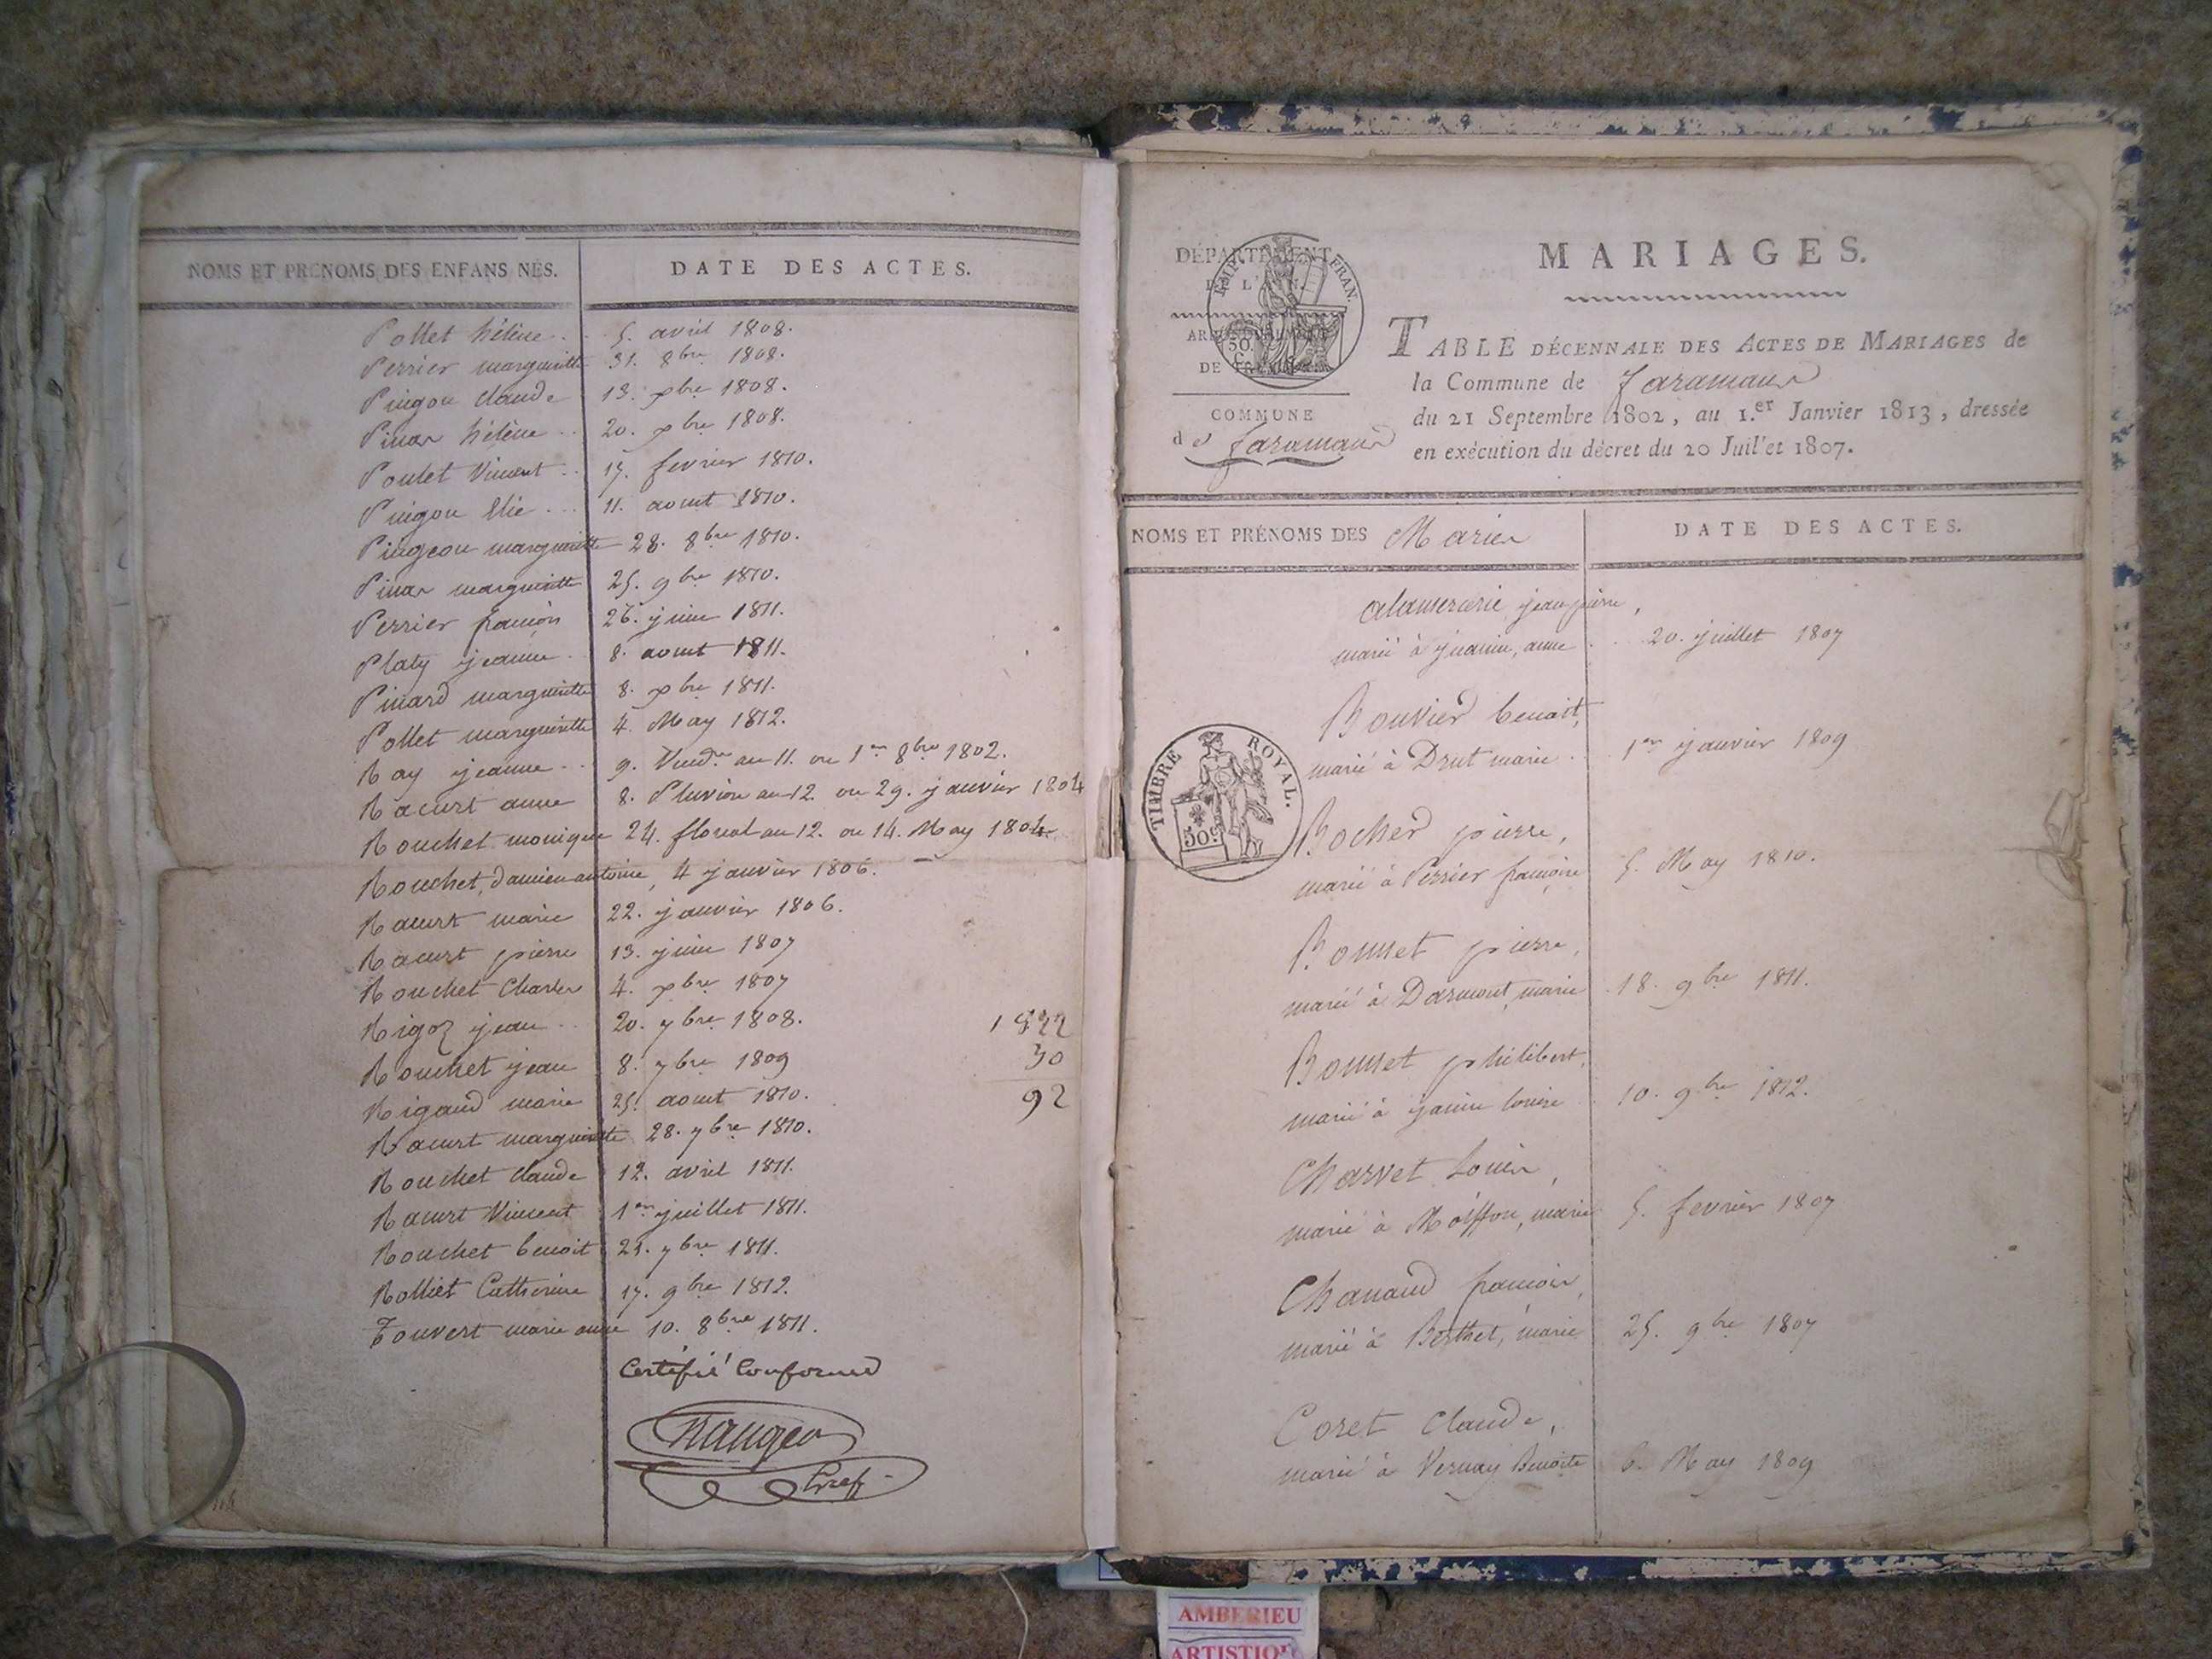 NOMS ET PRÉNOMS DES ENFANS NÉS. DATE DES ACTES.
Pollet hélène . . 5. avril 1808.
Perrier margueritte 31. 8bre 1808.
Pingon Claude 13. xbre 1808.
Pinar hélène . . 20. xbre 1808.
Poulet Vincent . . 17. fevrier 1810.
Pingon Elie . . . 11. aout 1810.
Pingeon margueritte 28. 8bre 1810.
Pinar margueritte 25. 9bre 1810.
Perrier françois 26. juin 1811.
Platy jeanne . 8. aout 1811.
Pinard margueritte 8. xbre 1811.
Pollet margueritte 4. May 1812.
Ray jeanne . . 9. Vendre an 11. ou 1er 8bre 1802.
Racurt anne 8. Pluviose an 12. ou 29. janvier 1804
Rouchet monique 24. floreal an 12. ou 14. May 1804
Rouchet, damien antoine, 4 janvier 1806.
Racurt marie 22. janvier 1806.
Racurt pierre 13. juin 1807
Rouchet Charles 4. xbre 1807
Rigoz jean . . 20. 7bre 1808.
Rouchet jean 8. 7bre 1809
Rigaud marie 25. aout 1810.
Racurt margueritte 28. 7bre 1810.
Rouchet Claude 12. avril 1811.
Racurt Vincent 1er juillet 1811.
Rouchet benoit 21. 7bre 1811.
Rolliet Catherine 17. 9bre 1812.
Touvert marie anne 10. 8bre 1811.
1822
30
92
Certifié Conforme
Greff
DÉPARTEMENT
DE L'AIN.
EMP. FRAN.
ARRONDISSEMENT
DE TRÉVOUX
50 C
COMMUNE
de faramans
MARIAGES.
TABLE DÉCENNALE DES ACTES DE MARIAGES de
la Commune de faramans
du 21 Septembre 1802, au 1.er Janvier 1813, dressée
en exécution du décret du 20 Juillet 1807.
NOMS ET PRÉNOMS DES Mariés DATE DES ACTES.
jean pierre,
marié à jeanin, anne . . 20. juillet 1807
Bouvier benoit,
marié à Drut marie . . 1er janvier 1809
TIMBRE ROYAL.
50c
Bocher pierre,
marié à Perrier françoise 5. May 1810.
Bonnet pierre,
marié à Darmont, marie 18. 9bre 1811.
Bonnet philibert,
marié à janin louise 10. 9bre 1812.
Charvet Louis,
marié à Moiffon, marie 5. fevrier 1807
Chanaud françois,
marié à Berthet, marie 25. 9bre 1807
Coret Claude,
marié à Vernay Benoite 6. May 1809
AMBERIEU
ARTISTIQ